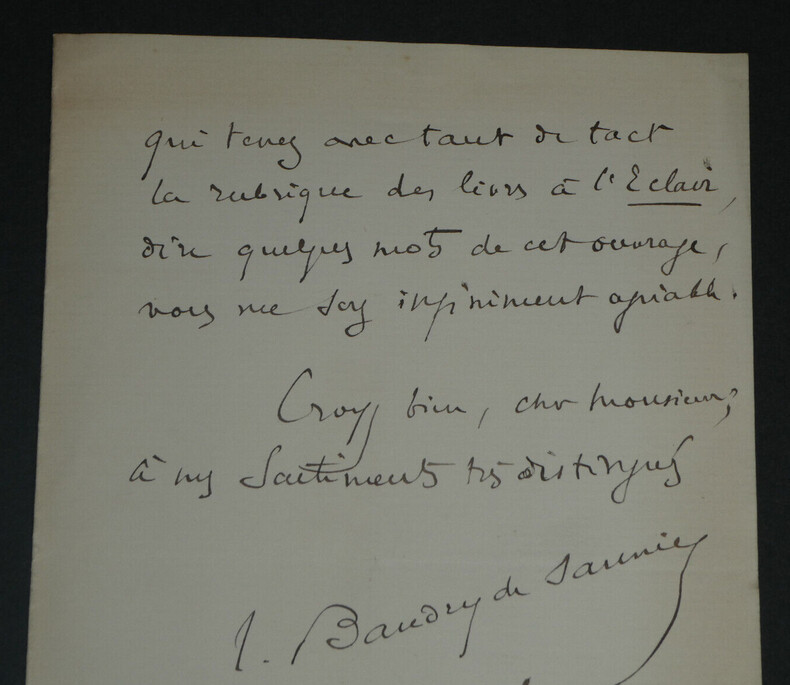 qui tenez avec tant de tact
la rubrique des livres à l'Eclair,
dire quelques mots de cet ouvrage,
vous me serez infiniment agréable.
Croyez bien, cher monsieur,
à mes Sentiments très distingués
L. Baudry de Saunier